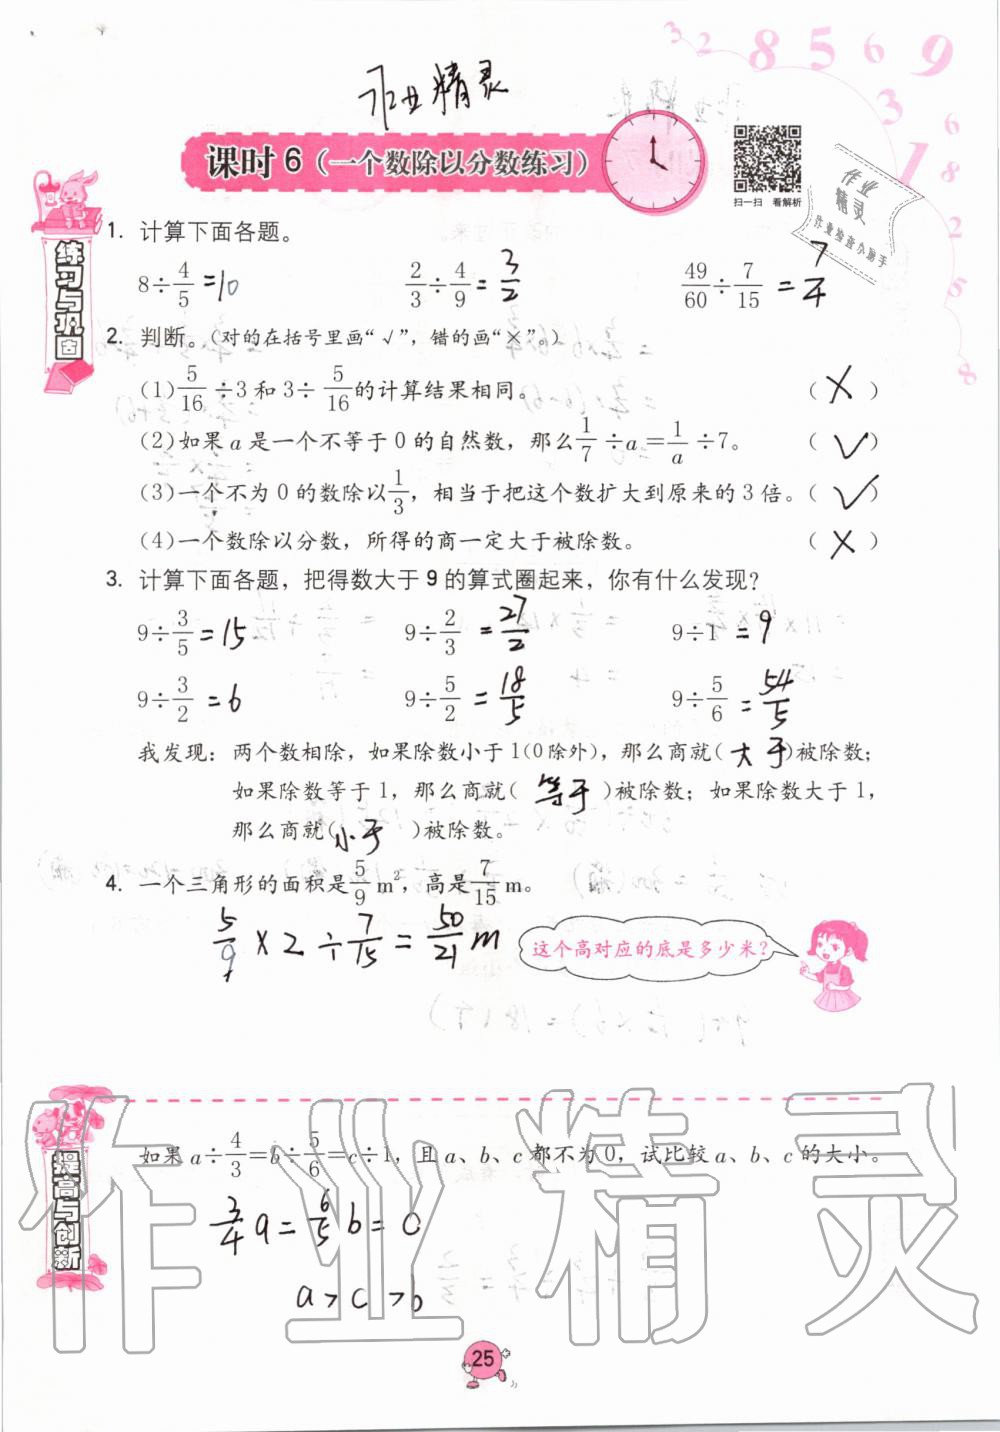 3 2 8 5 6 9
3 6
1 8
2
5
8
作业精灵
课时6（一个数除以分数练习）
扫一扫 看解析
作业
精灵
作业检查小助手
练习与巩固
1. 计算下面各题。
8÷4/5 =10 2/3÷4/9 = 3/2 49/60÷7/15 = 7/4
2. 判断。（对的在括号里画“√”，错的画“×”。）
(1) 5/16÷3和3÷5/16的计算结果相同。 （ × ）
(2)如果a是一个不等于0的自然数，那么1/7÷a=1/a÷7。 （ √ ）
(3)一个不为0的数除以1/3，相当于把这个数扩大到原来的3倍。（ √ ）
(4)一个数除以分数，所得的商一定大于被除数。 （ × ）
3. 计算下面各题，把得数大于9的算式圈起来，你有什么发现？
9÷3/5 =15 9÷2/3 = 27/2 9÷1 =9
9÷3/2 =6 9÷5/2 = 18/5 9÷5/6 = 54/5
我发现：两个数相除，如果除数小于1(0除外)，那么商就(大于)被除数；
如果除数等于1，那么商就( 等于 )被除数；如果除数大于1，
那么商就(小于 )被除数。
4. 一个三角形的面积是5/9 m²，高是7/15 m。
5/9×2÷7/15=50/21 m
这个高对应的底是多少米？
提高与创新
如果a÷4/3=b÷5/6=c÷1，且a、b、c都不为0，试比较a、b、c的大小。
3/4a=6/5b=C
a>c>b
作业精灵
25